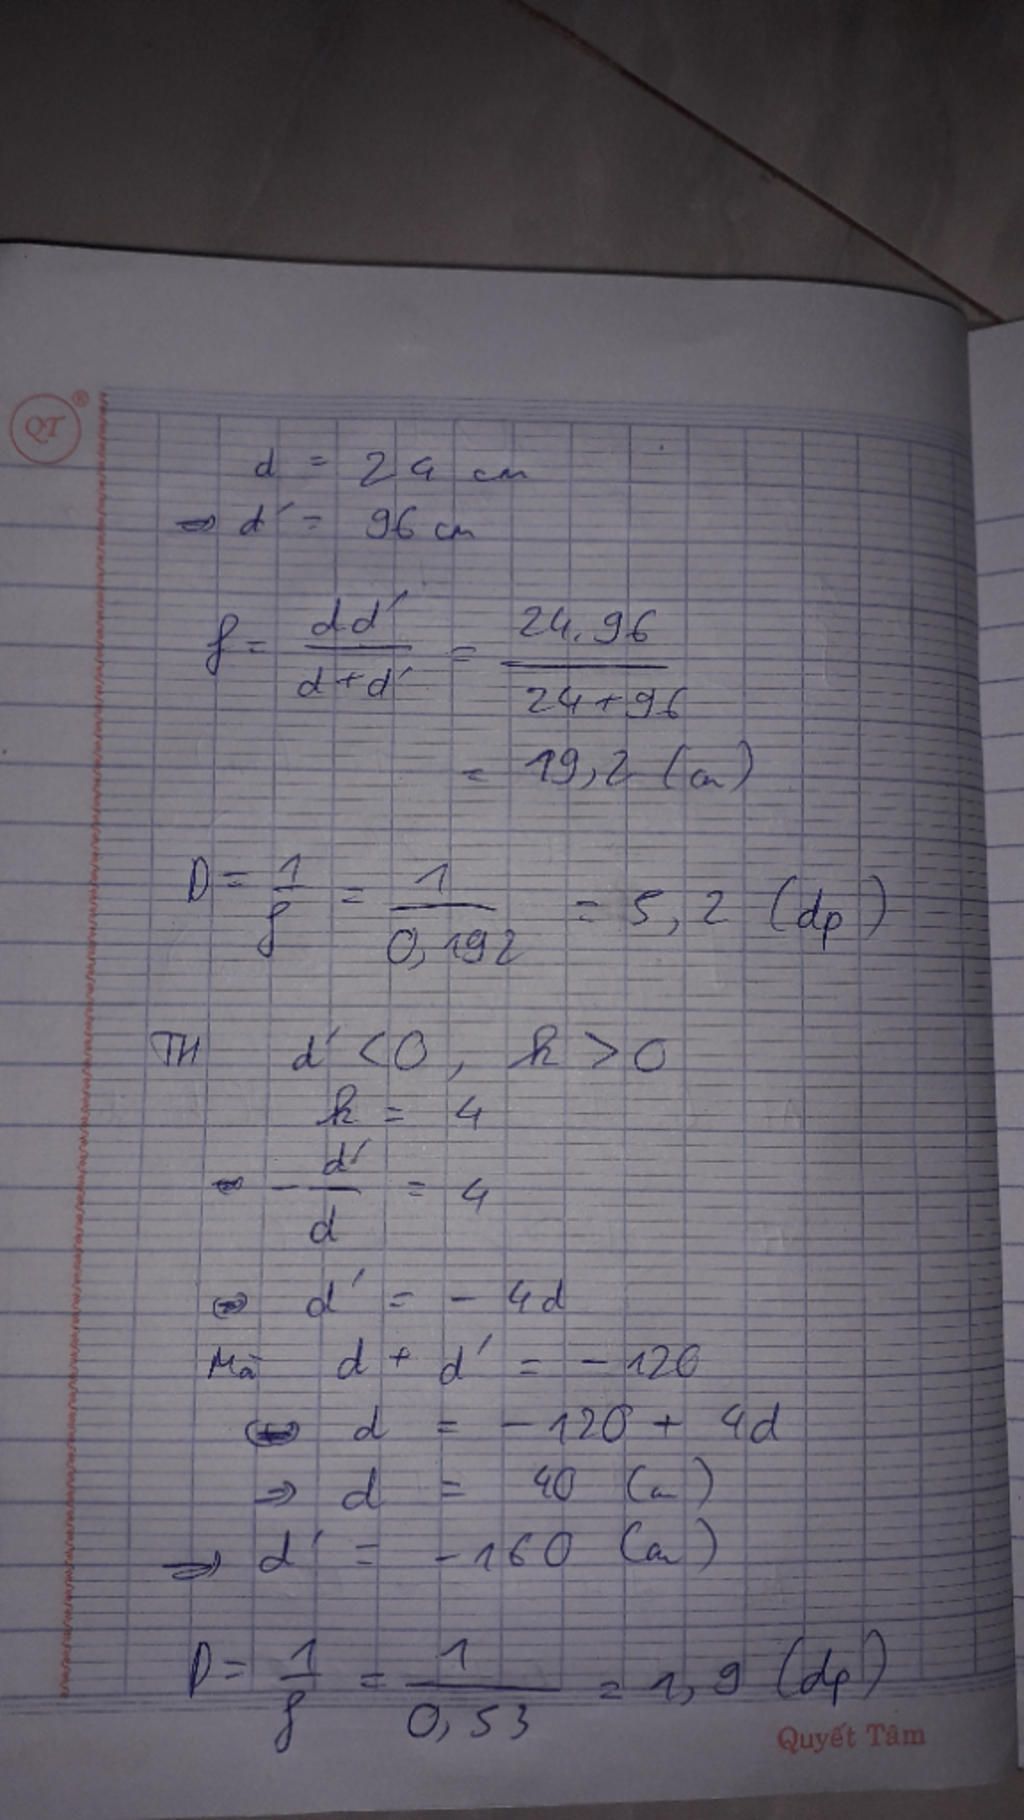 QT ®
d = 24 cm
⇒ d' = 96 cm
f = dd' / d + d' = 24.96 / 24 + 96
= 19,2 (cm)
D = 1 / f = 1 / 0,192 = 5,2 (dp)
TH d' < 0, k > 0
k = 4
⇔ - d' / d = 4
⇔ d' = - 4d
Mà d + d' = - 120
⇔ d = - 120 + 4d
⇒ d = 40 (cm)
⇒ d' = - 160 (cm)
D = 1 / f = 1 / 0,53 = 1,9 (dp)
Quyết Tâm